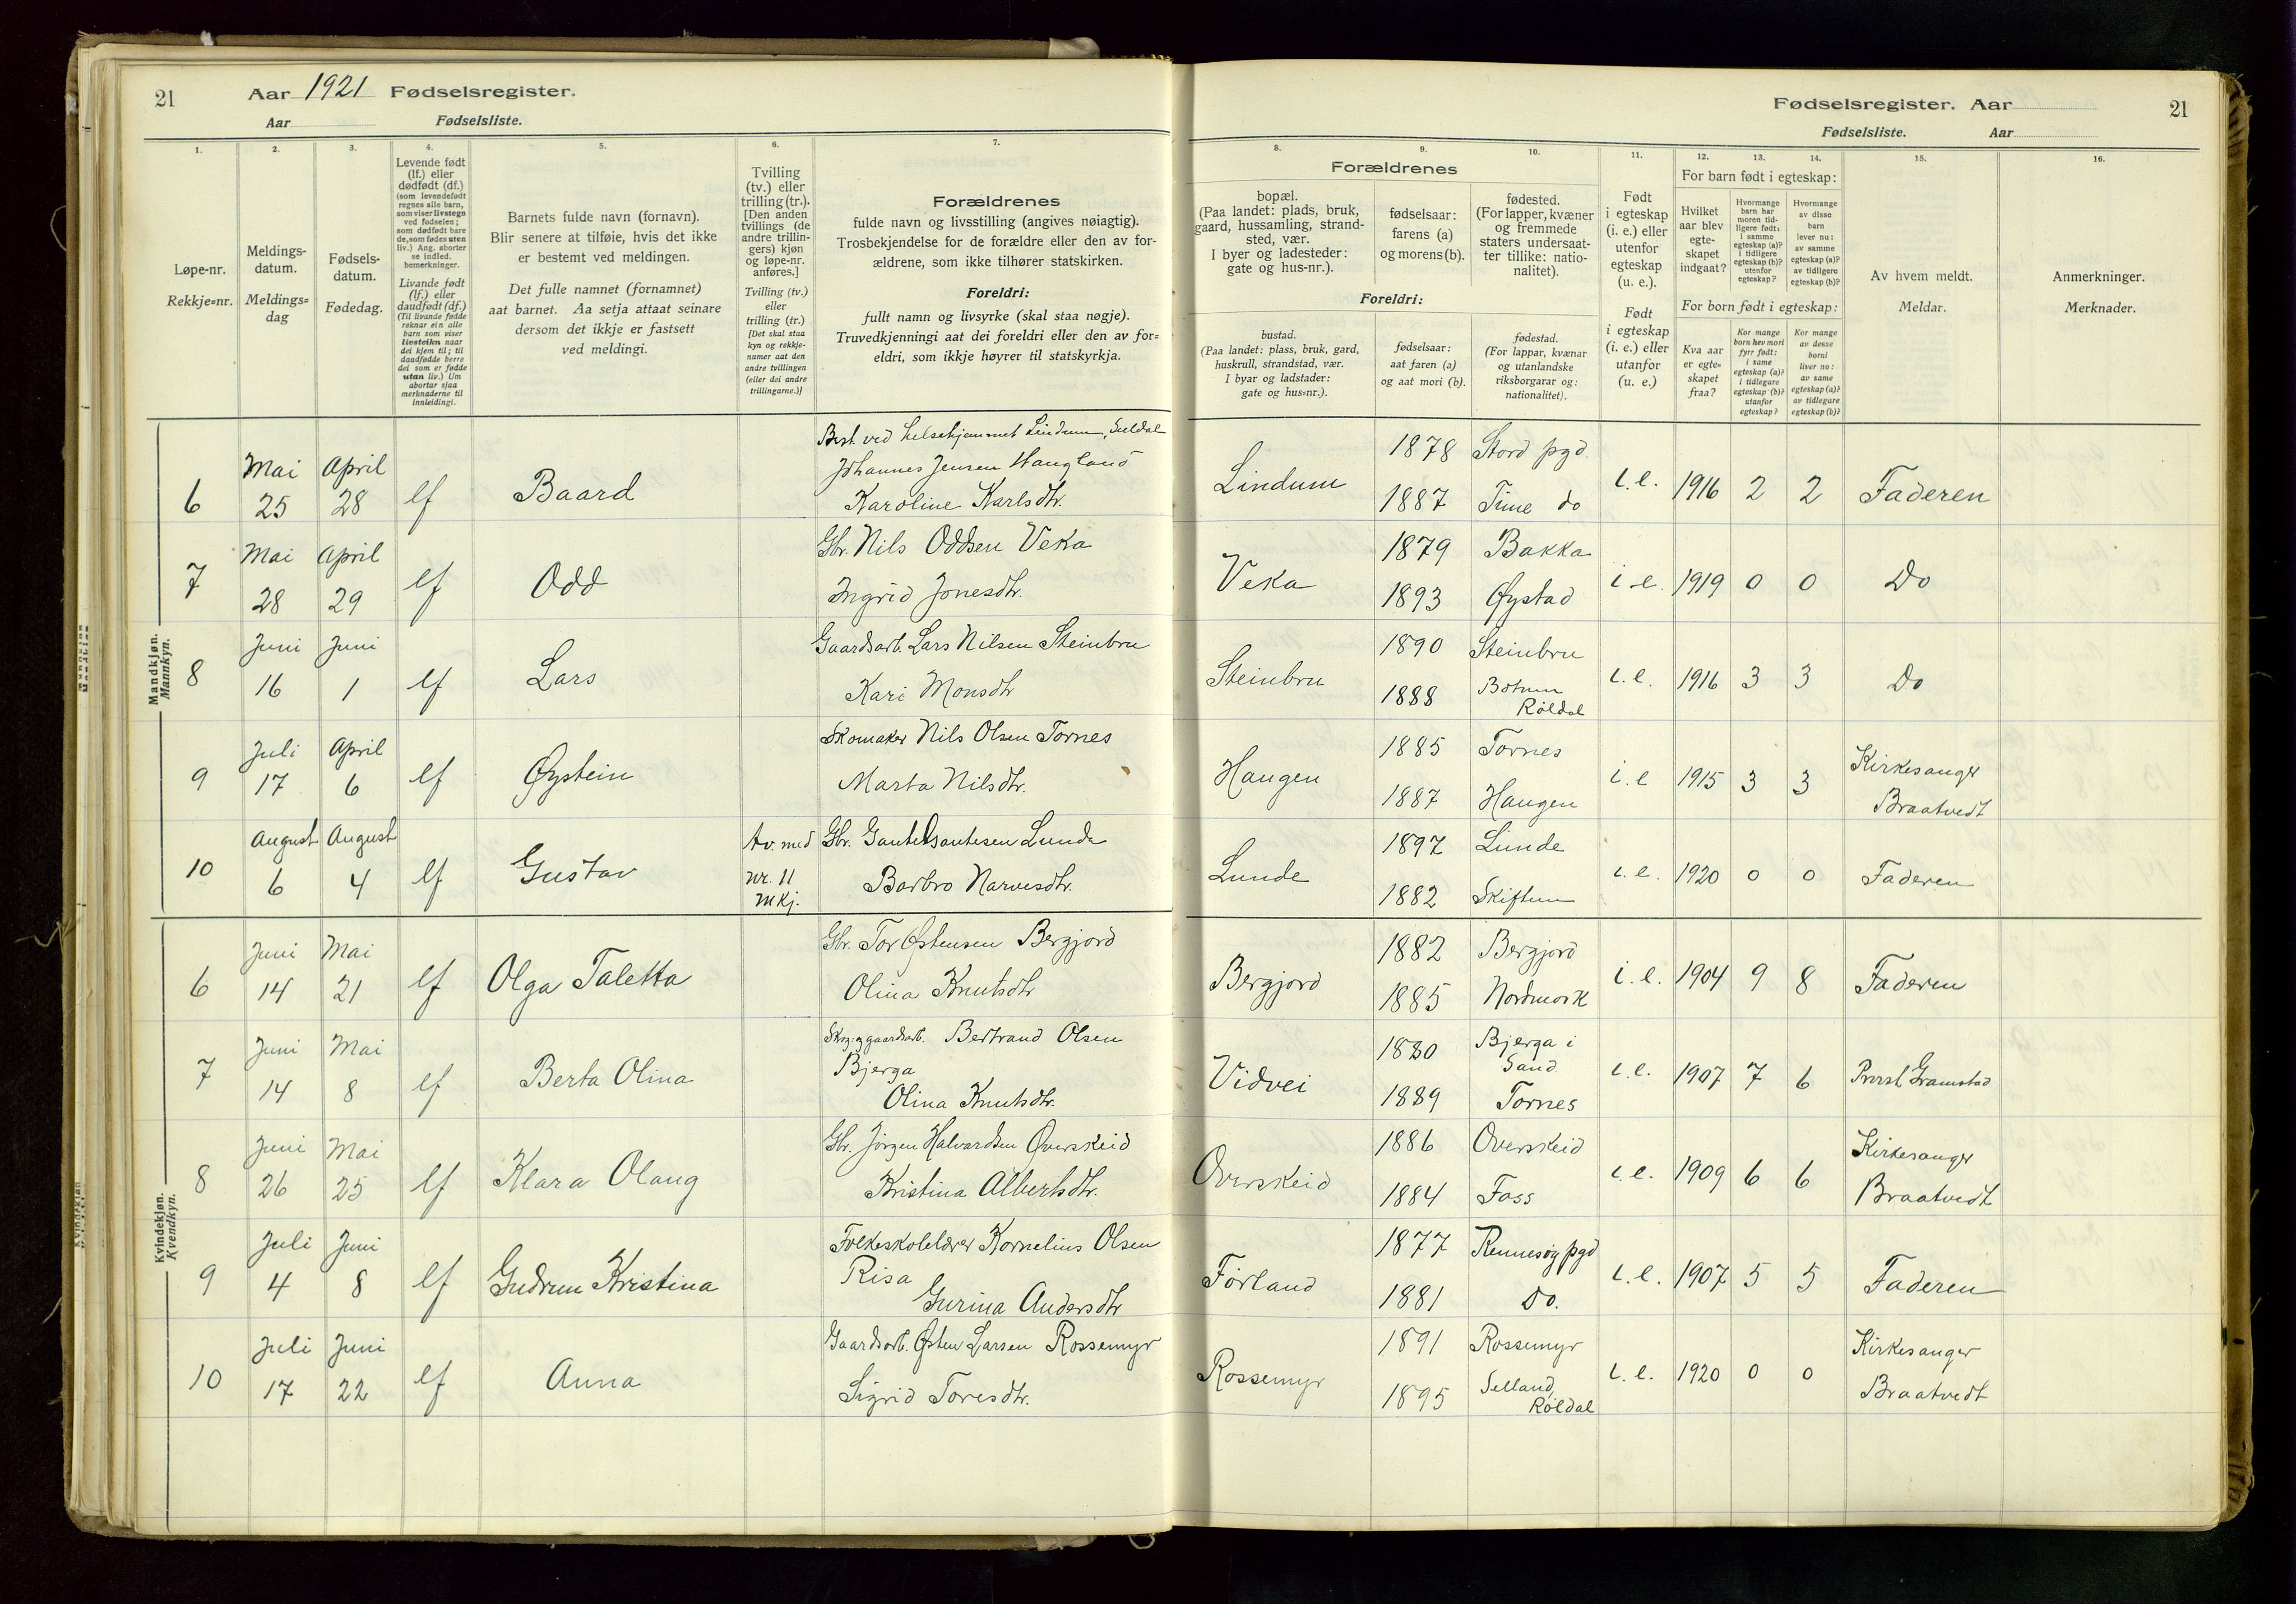 21 Aar 1921 Fødselsregister.
Aar Fødselsliste.
1.
Løpe-nr.
Rekkje=nr.
2.
Meldings-
datum.
Meldings=
dag
3.
Fødsels-
datum.
Fødedag.
4.
Levende født
(lf.) eller
dødfødt (df.)
(som levendefødt
regnes alle barn,
som viser livstegn
ved fødselen;
som dødfødt bare
de, som fødes uten
liv.) Ang. aborter
se indled.
bemerkninger.
Livande født
(lf.) eller
daudfødt (df.)
(Til livande fødde
reknar ein alle
barn som viser
livsteikn naar
dei kjem til; til
daudfødde berre
dei som er fødde
utan liv.) Um
abortar sjaa
merknaderne til
innleidingi.
5.
Barnets fulde navn (fornavn).
Blir senere at tilføie, hvis det ikke
er bestemt ved meldingen.
Det fulle namnet (fornamnet)
aat barnet. Aa setja attaat seinare
dersom det ikkje er fastsett
ved meldingi.
6.
Tvilling
(tv.) eller
trilling (tr.).
[Den anden
tvillings (de
andre trillin-
gers) kjøn
og løpe-nr.
anføres.]
Tvilling (tv.)
eller
trilling (tr.)
[Det skal staa
kyn og rekkje-
numer aat den
andre tvillingen
(eller dei andre
trillingarne.)]
7.
Forældrenes
fulde navn og livsstilling (angives nøiagtig).
Trosbekjendelse for de forældre eller den av for-
ældrene, som ikke tilhører statskirken.
Foreldri:
fullt namn og livsyrke (skal staa nøgje).
Truvedkjenningi aat dei foreldri eller den av for=
eldri, som ikkje høyrer til statskyrkja.
Mandkjøn.
Mannkyn.
6 Mai 25 April 28 lf Baard
Best. ved helsehjemmet Lindum, Suldal
Johannes Jensen Haugland
Karoline Karlsdtr.
7 Mai 28 April 29 lf Odd
Gbr. Nils Oddsen Veka
Ingrid Jonesdtr.
8 Juni 16 Juni 1 lf Lars
Gaardsarb. Lars Nilsen Steinbru
Kari Monsdtr
9 Juli 17 April 6 lf Øystein
Skomaker Nils Olsen Tornes
Marta Nilsdtr.
10 August 6 August 4 lf Gustav
tv. med
nr. 11
mkj.
Gbr. Gaute Gautesen Lunde
Barbro Narvesdtr.
Kvindekjøn.
Kvendkyn.
6 Juni 14 Mai 21 lf Olga Taletta
Gbr. Tor Østensen Bergjord
Olina Knutsdtr
7 Juni 14 Mai 8 lf Berta Olina
Skog og gaardsarb. Bertrand Olsen
Bjerga
Olina Knutsdtr.
8 Juni 26 Mai 25 lf Klara Olaug
Gbr. Jørgen Halvardsen Overskeid
Kristina Albertsdtr.
9 Juli 4 Juni 8 lf Gudrun Kristina
Folkeskolelærer Kornelius Olsen
Risa
Gurina Andersdtr
10 Juli 17 Juni 22 lf Anna
Gaardsarb. Østen Larsen Rossemyr
Sigrid Toresdtr.
Fødselsregister. Aar 21
Fødselsliste. Aar
Forældrenes
8.
bopæl.
(Paa landet: plads, bruk,
gaard, hussamling, strand-
sted, vær.
I byer og ladesteder:
gate og hus-nr.).
Foreldri:
bustad.
(Paa landet: plass, bruk, gard,
huskrull, strandstad, vær.
I byar og ladstader:
gate og hus=nr.).
9.
fødselsaar:
farens (a)
og morens (b).
fødselsaar:
aat faren (a)
og aat mori (b).
10.
fødested.
(For lapper, kvæner
og fremmede
staters undersaat-
ter tillike: natio-
nalitet).
fødestad.
(For lappar, kvænar
og utanlandske
riksborgarar og:
nationalitet).
11.
Født
i egteskap
(i. e.) eller
utenfor
egteskap
(u. e.).
Født
i egteskap
(i. e.) eller
utanfor
(u. e.)
For barn født i egteskap:
12.
Hvilket
aar blev
egte-
skapet
indgaat?
13.
Hvormange
barn har
moren tid-
ligere født:
i samme
egteskap (a)?
i tidligere
egteskap (b)?
utenfor
egteskap?
14.
Hvormange
av disse
barn
lever nu:
av samme
egteskap (a)?
av tidligere
egteskap (b)?
For born født i egteskap:
Kva aar
er egte=
skapet
fraa?
Kor mange
born hev mori
fyrr født:
i same
egteskap (a)?
i tidlegare
egteskap (b)?
utanfor
egteskap?
Kor mange
av desse
borni
liver no:
av same
egteskap (a)?
av tidlegare
egteskap (b)?
15.
Av hvem meldt.
Meldar.
16.
Anmerkninger.
Merknader.
Lindum 1878 Stord pgd.
1887 Time do
i.e. 1916 2 2 Faderen
Veka 1879 Bakka
1893 Øystad
i.e. 1919 0 0 Do
Steinbru 1890 Steinbru
1888 Botnen
Røldal
i.e. 1916 3 3 Do
Haugen 1885 Tornes
1887 Haugen
i.e 1915 3 3 Kirkesanger
Braatvedt
Lunde 1897 Lunde
1882 Skiftun
i.e. 1920 0 0 Faderen
Bergjord 1882 Bergjord
1885 Nordmork
i.e. 1904 9 8 Faderen
Vidvei 1880 Bjerga i
Sand
1889 Tornes
i.e. 1907 7 6 Prest Gramstad
Overskeid 1886 Overskeid
1884 Foss
i.e. 1909 6 6 Kirkesanger
Braatvedt
Førland 1877 Rennesøy pgd
1881 Do.
i.e. 1907 5 5 Faderen
Rossemyr 1891 Rossemyr
1895 Selland,
Røldal
i.e. 1920 0 0 Kirkesanger
Braatvedt